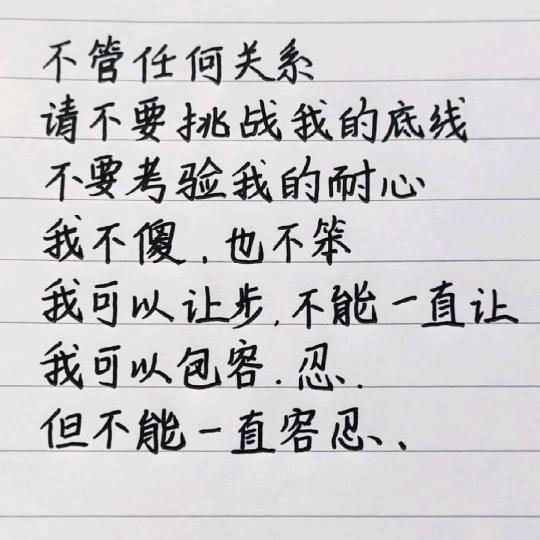 不管任何关系
请不要挑战我的底线
不要考验我的耐心
我不傻,也不笨
我可以让步,不能一直让
我可以包容.忍.
但不能一直容忍、